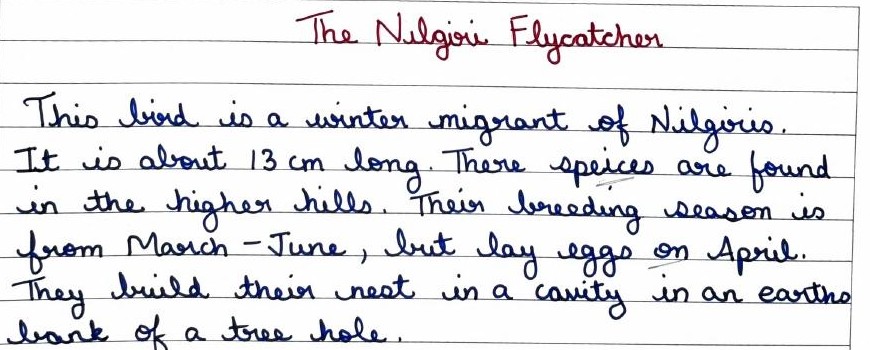 The Nilgiri Flycatcher
This bird is a winter migrant of Nilgiris.
It is about 13 cm long. There speices are found
in the higher hills. Their breeding season is
from March - June, but lay eggs on April.
They build their nest in a cavity in an earths
bank of a tree hole.